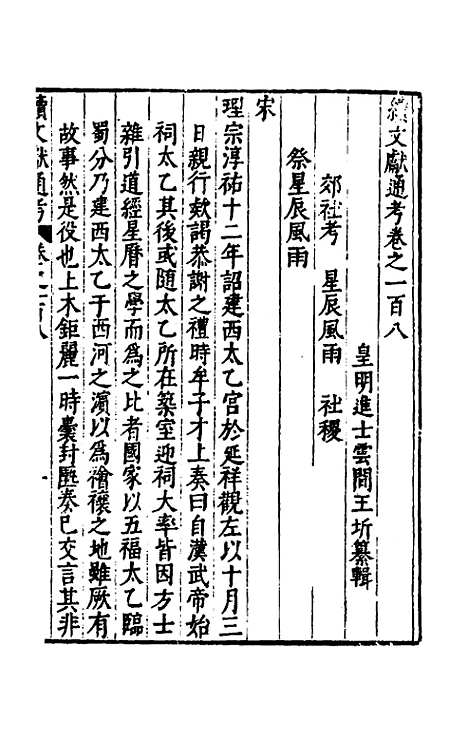 續文獻通考卷之一百八
皇明進士雲間王圻纂輯
郊社考 星辰風雨 社稷
祭星辰風雨
宋
理宗淳祐十二年詔建西太乙宫於延祥觀左以十月三
日親行欵謁恭謝之禮時牟子才上奏曰自漢武帝始
祠太乙其後或隨太乙所在築室迎祠大率皆因方士
雜引道經星曆之學而爲之比者國家以五福太乙臨
蜀分乃建西太乙于西河之濵以爲禬禳之地雖厥有
故事然是役也土木鉅麗一時囊封匭奏巳交言其非
續文獻通考 卷之一百八 一